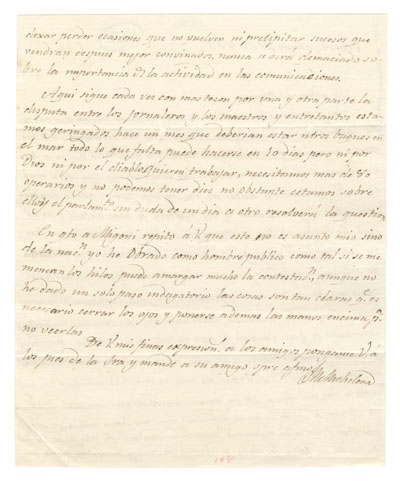 dexar perder ocasiones que no vuelven ni precipitar sucesos que
vendran despues mejor convinados, nunca se dirá demaciado so-
bre la importancia de la actividad en las comunicaciones.
Aqui sigue cada vez con mas tezon por una y otra parte la
disputa entre los jornaleros y los maestros y entretantos esta-
mos geringados hace un mes que deberian estar ntros buques en
el mar todo lo que falta puede hacerse en 10 dias pero ni por
Dios ni por el diablo quieren trabajar, necesitamos mas de 80
operarios y no podemos tener diez no obstante estamos sobre
ellos y el parlamto. sin duda de un dia a otro resolverá la question
En qto a Migoni repito á V. que este no es asunto mio sino
de la nacn. yo he obrado como hombre publico como tal si se me
menean los hilos puede amargar mucho la contestacn., aunque no
he dado un solo paso indagatorio las cosas son tan claras qe. es
necesario cerrar los ojos y ponerse ademas las manos encima pa.
no verlas.
De V. mis finas expresions. a los amigos pongame V. á
los pies de la Sra y mande a su amigo spre afmo
Michelena